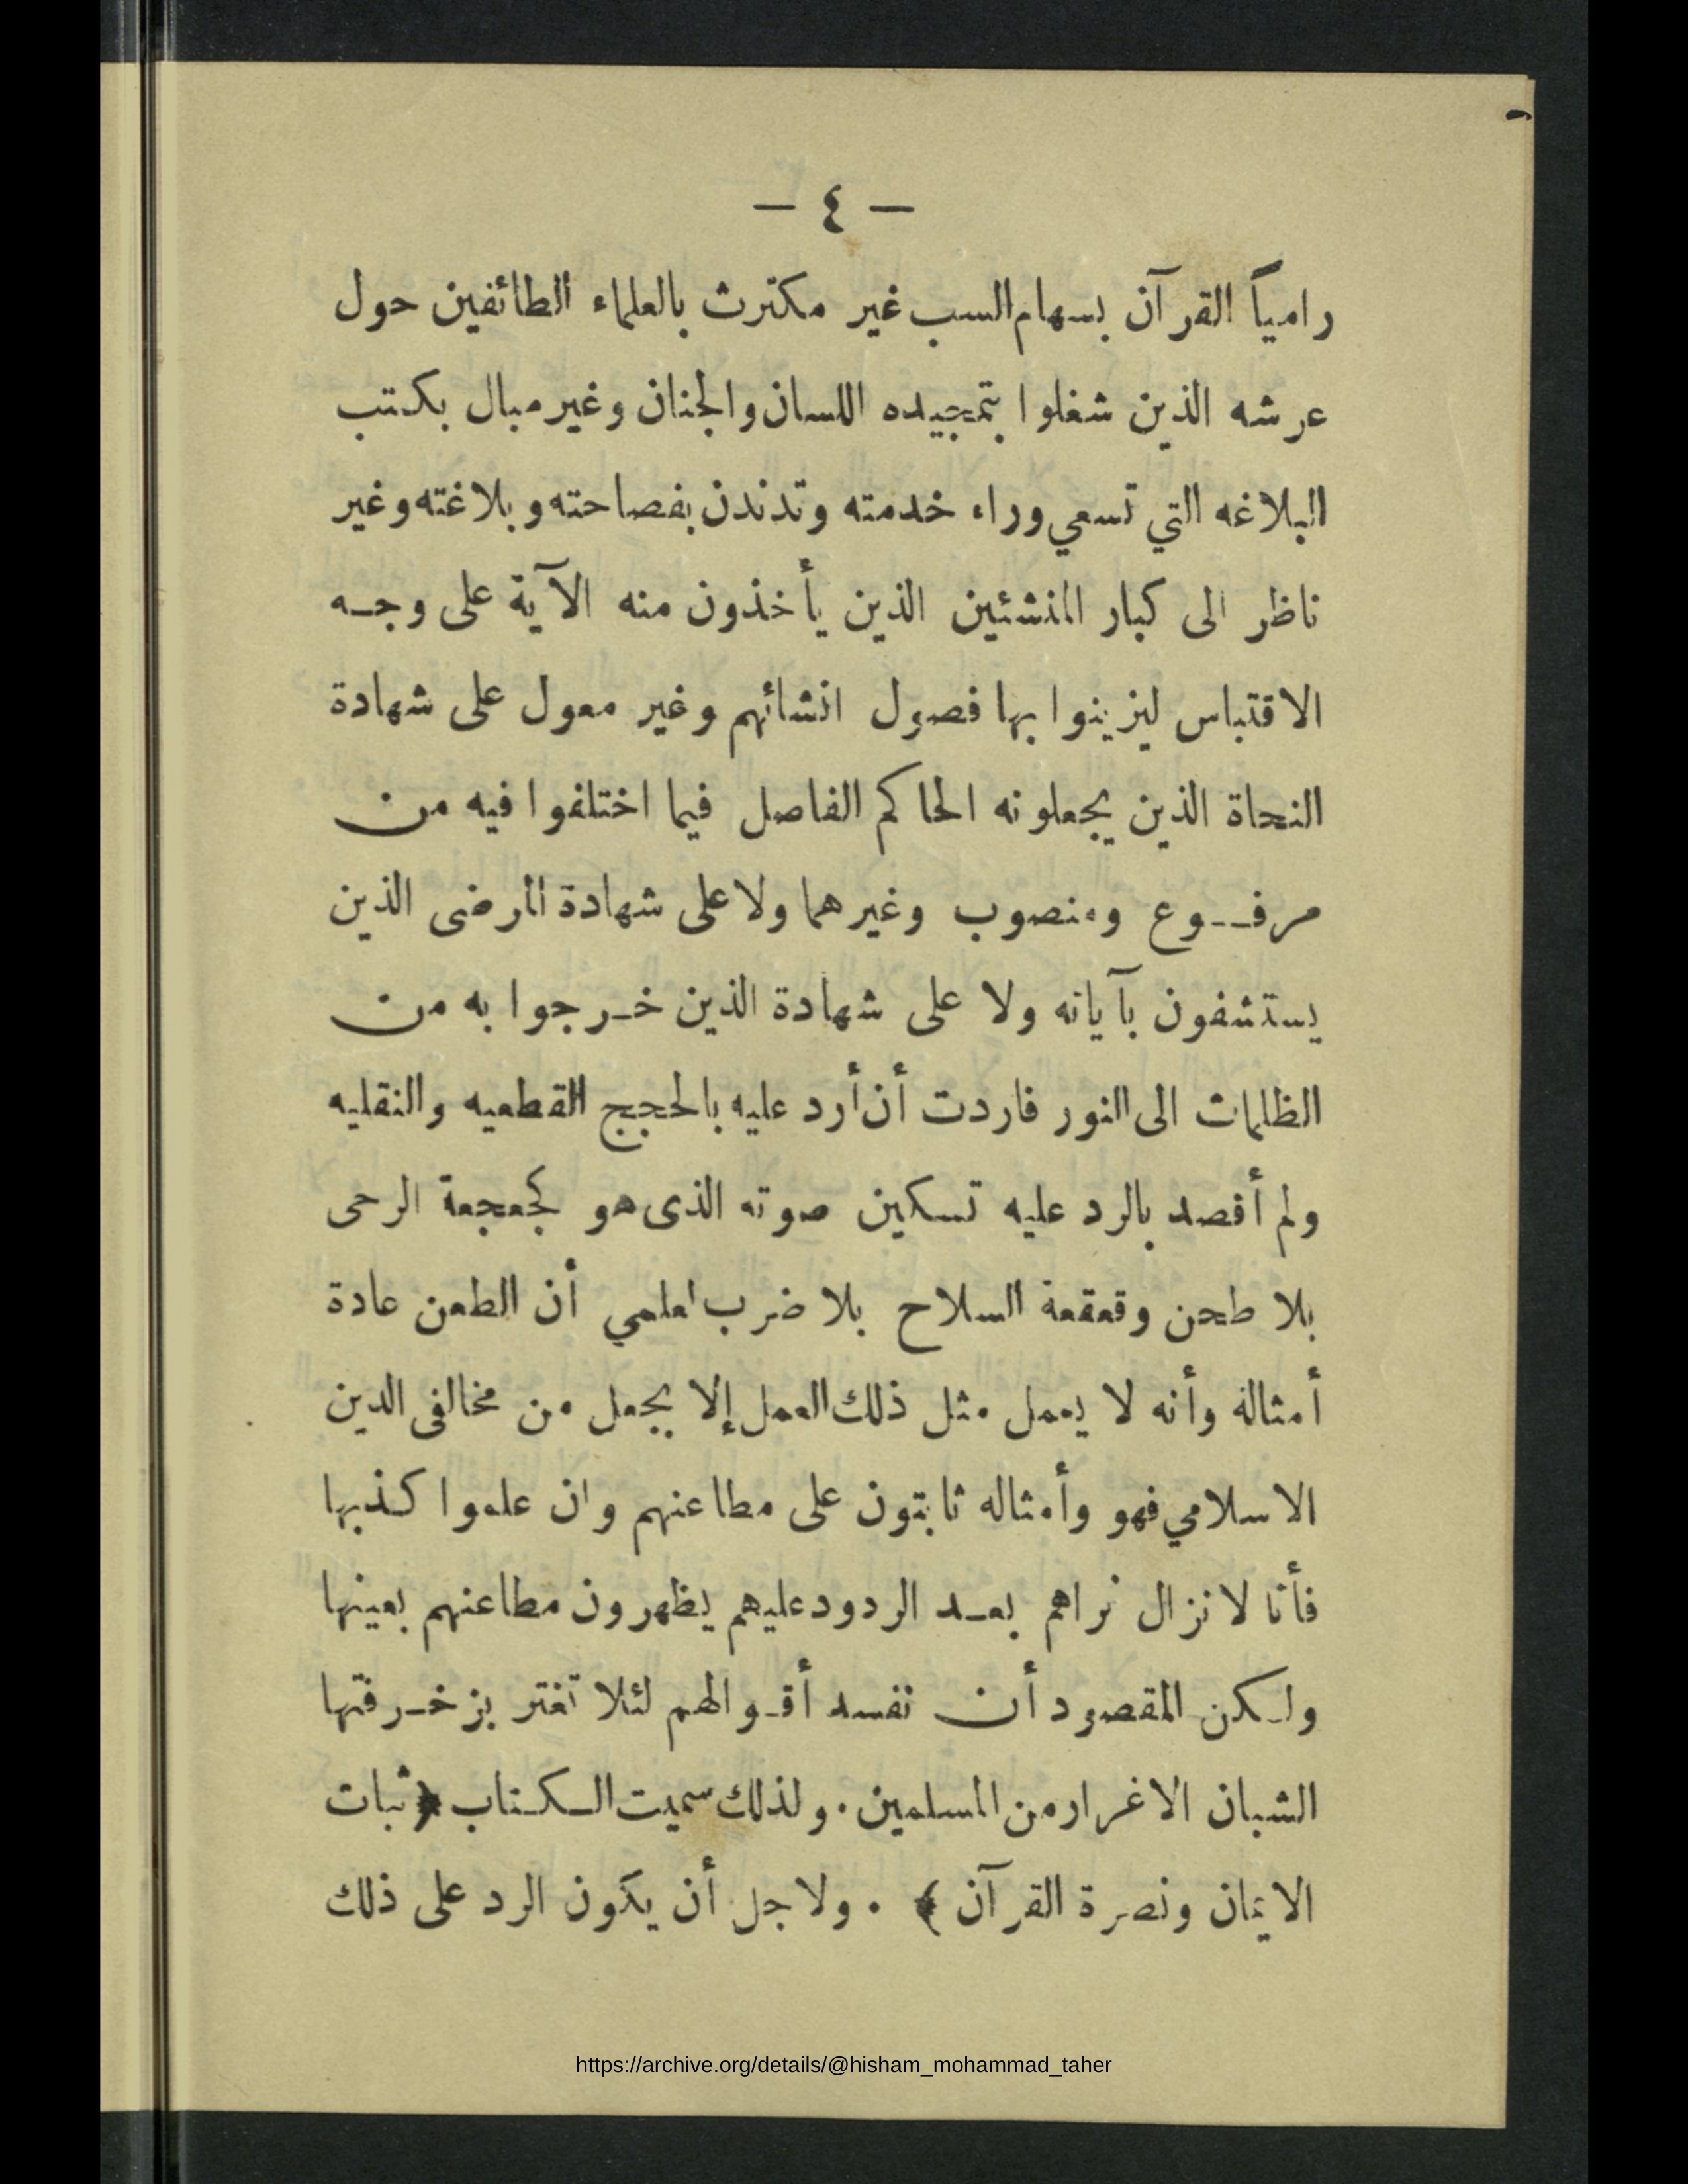 — ٤ —
رامياً القرآن بسهام السب غير مكترث بالعلماء الطائفين حول
عرشه الذين شغلوا بتمجيده اللسان والجنان وغير مبال بكتب
البلاغه التي تسعي وراء خدمته وتدندن بفصاحته وبلاغته وغير
ناظر الى كبار المنشئين الذين يأخذون منه الآية على وجه
الاقتباس ليزينوا بها فصول انشائهم وغير معول على شهادة
النحاة الذين يجعلونه الحاكم الفاصل فيما اختلفوا فيه من
مرفوع ومنصوب وغيرهما ولا على شهادة المرضى الذين
يستشفون بآياته ولا على شهادة الذين خرجوا به من
الظلمات الى النور فاردت أن أرد عليه بالحجج القطعيه والنقليه
ولم أقصد بالرد عليه تسكين صوته الذى هو كجعجعة الرحى
بلا طحن وقعقعة السلاح بلا ضرب لعلمي أن الطعن عادة
أمثاله وأنه لا يعمل مثل ذلك العمل إلا بجعل من مخالفى الدين
الاسلامي فهو وأمثاله ثابتون على مطاعنهم وان علموا كذبها
فأنا لا نزال نراهم بعد الردود عليهم يظهرون مطاعنهم بعينها
ولكن المقصود أن نفسد أقوالهم لئلا تغتر بزخرفتها
الشبان الاغرار من المسلمين . ولذلك سميت الكتاب ﴿ ثبات
الايمان ونصرة القرآن ﴾ . ولاجل أن يكون الرد على ذلك
https://archive.org/details/@hisham_mohammad_taher